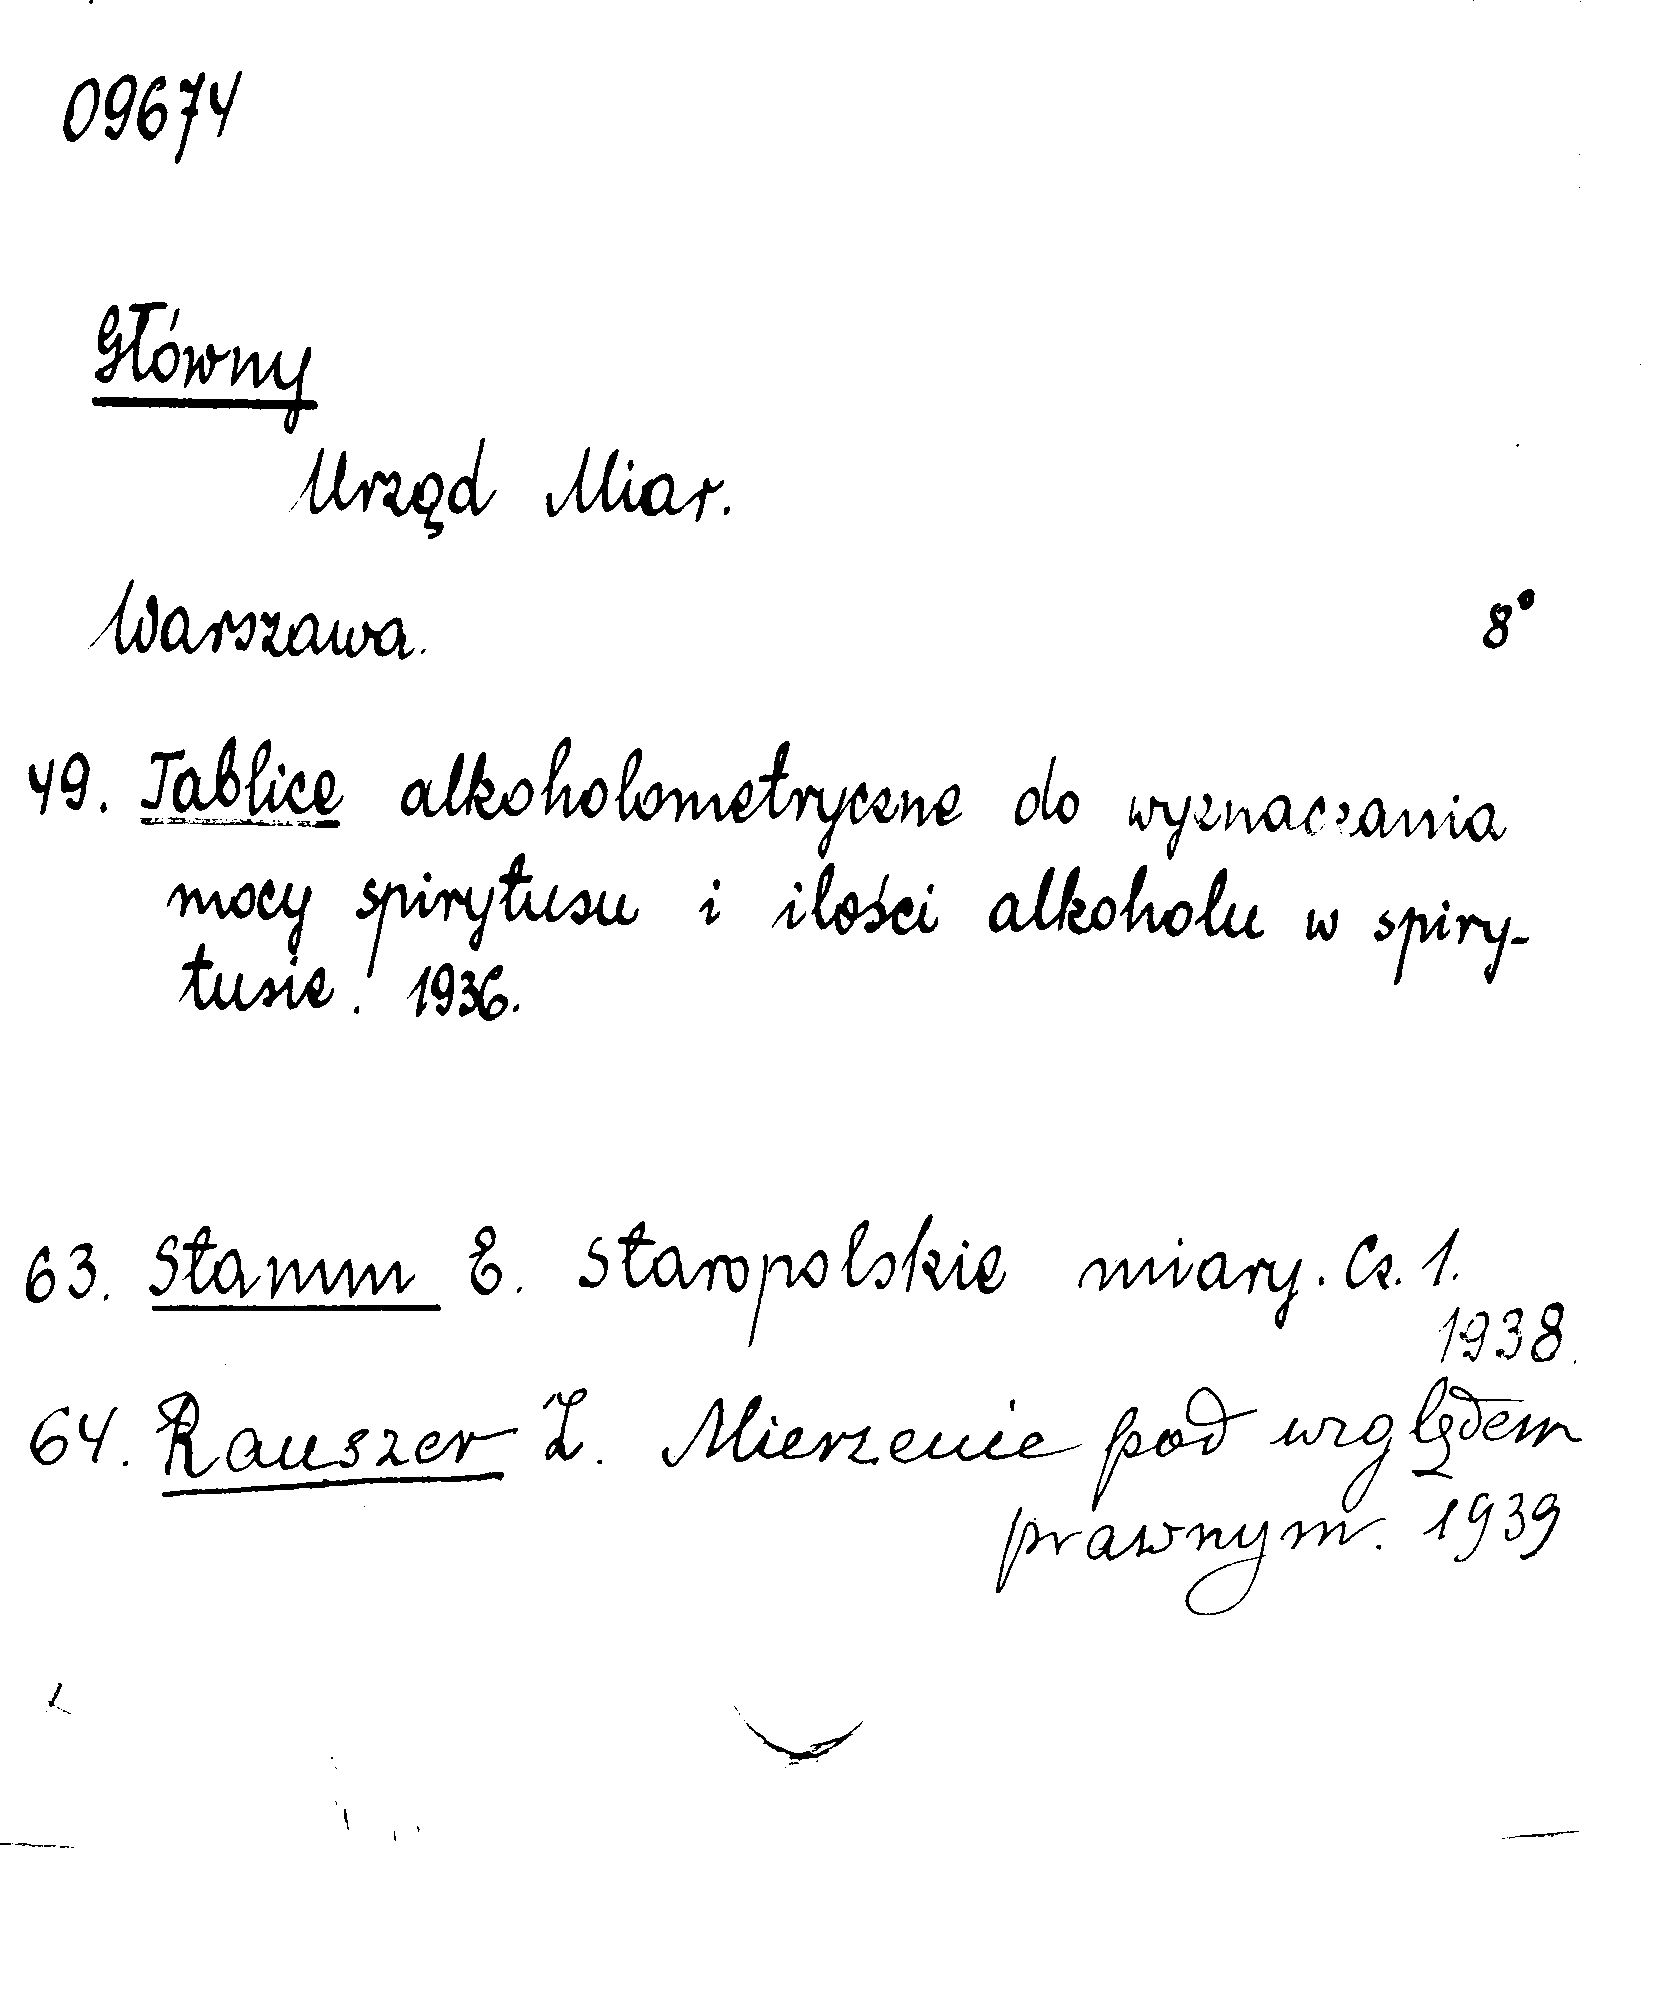 09674
Główny
Urząd Miar.
Warszawa. 8°
49. Tablice alkoholometryczne do wyznaczania
mocy spirytusu i ilości alkoholu w spiry-
tusie. 1936.
63. Stamm E. Staropolskie miary. Cz. 1.
1938.
64. Rauszer Z. Mierzenie pod względem
prawnym. 1939